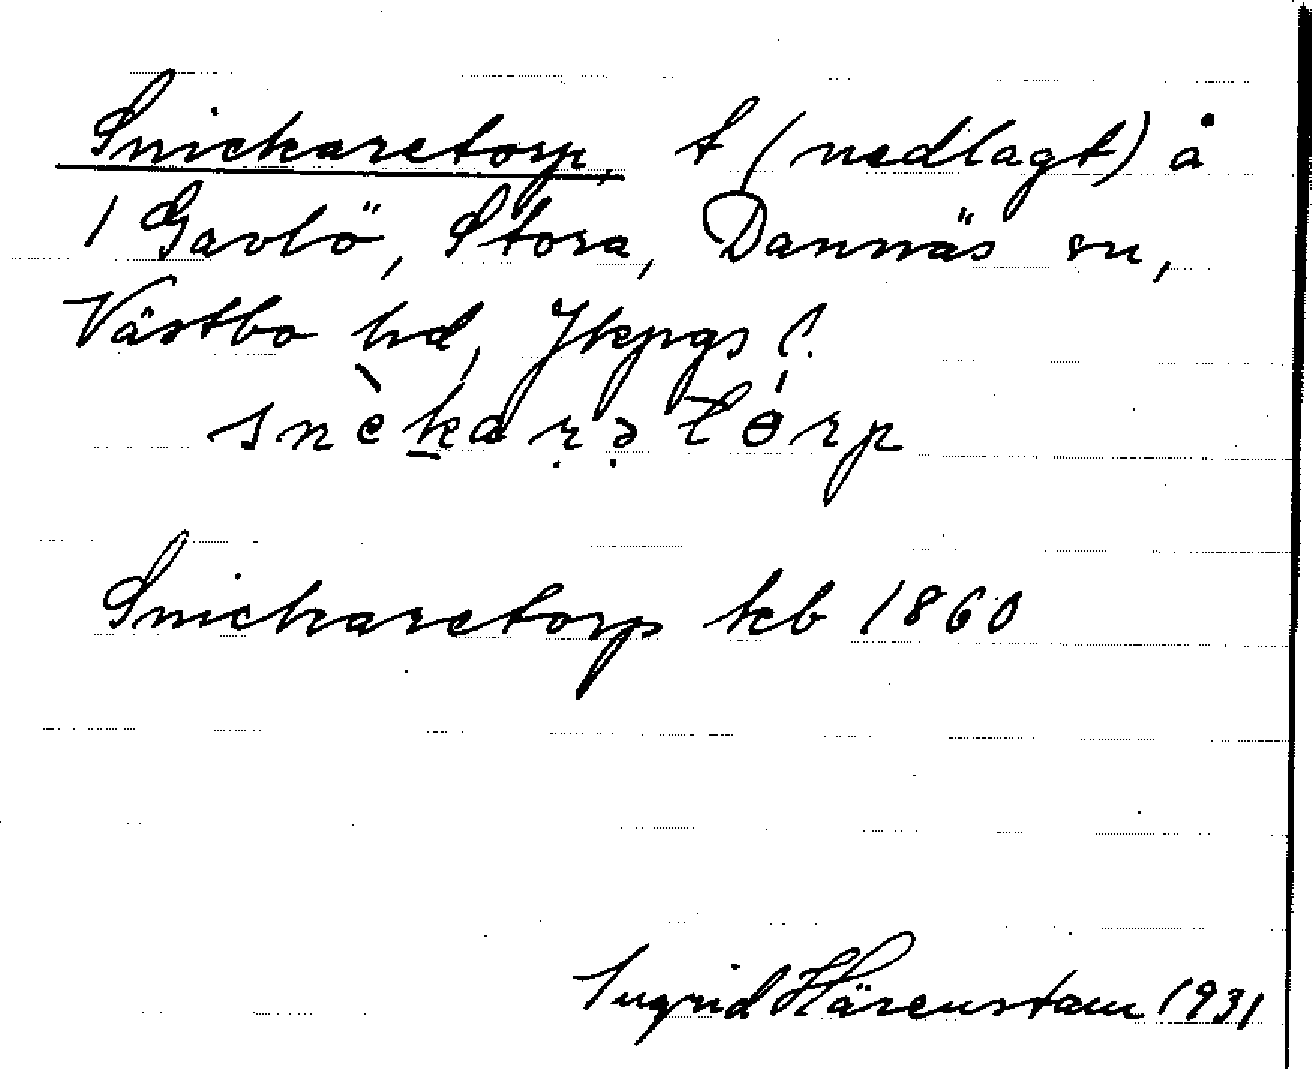 Snickaretorp, t (nedlagt) å
1 Gavlö, Stora, Dannäs sn,
Västbo hd, Jkpgs l.
snèkarətɵ́rp
Snickaretorp kb 1860
Ingrid Härenstam 1931